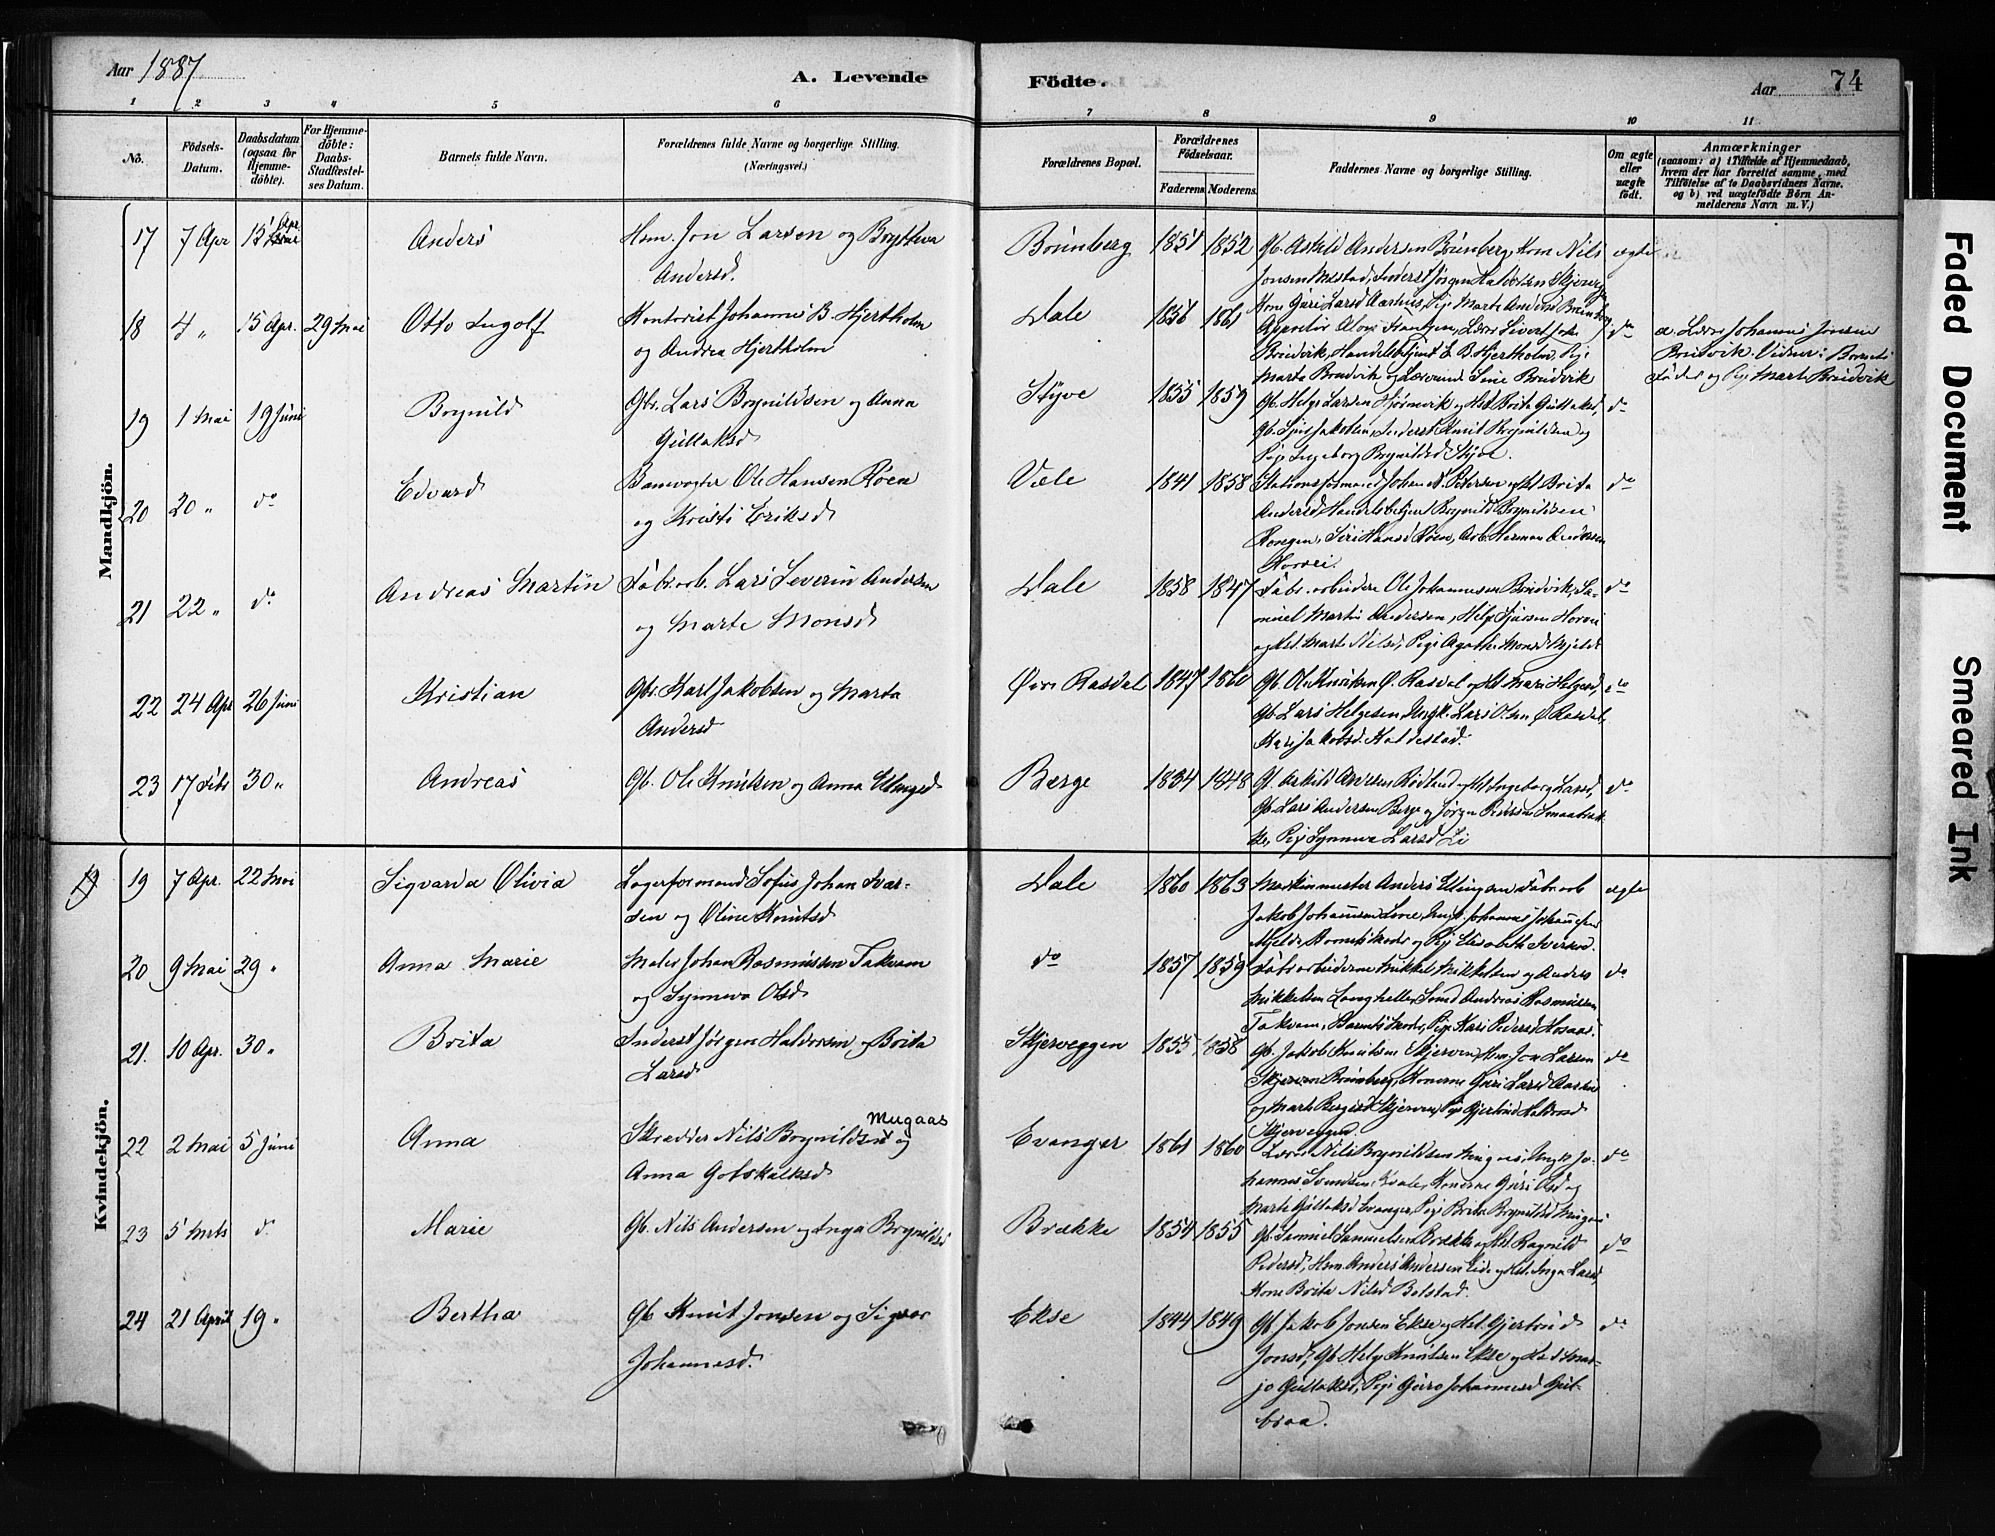 Aar 1887
A. Levende
Födte.
Aar 74
1 2 3 4 5 6 7 8 9 10 11
No.
Födsels-Datum.
Daabsdatum (ogsaa for Hjemme-döbte).
For Hjemme-döbte: Daabs-Stadfæstel-ses Datum.
Barnets fulde Navn.
Forældrenes fulde Navne og borgerlige Stilling.
(Næringsvei.)
Forældrenes Bopæl.
Forældrenes Födselsaar.
Faderens. Moderens.
Faddernes Navne og borgerlige Stilling.
Om ægte eller uægte födt.
Anmærkninger
(saasom: a) i Tilfælde af Hjemmedaab, hvem der har forrettet samme, med Tilföielse af to Daabsvidners Navne. og b) ved uægtefödte Börn An-melderens Navn m. V.)
Mandkjön.
17 7 Apr 15 Apr Anders Hsm. Jon Larsen og Brythva Andersd. Brúnberg 1851 1852 Gb. Askild Andersen Brúnberg, Hsm Nils ægte
Jonsen Mestad, Inderst Jørgen Haldorsen Skjerveg
18 4 " 15 Apr. 29 Mai Otto Ingolf Kontorist Johannes B. Hjertholm og Andrea Hjertholm Dale 1861 do
a. Lærer Johannes Jonsen Brudvik. Vidner: Barnets Fader og Pige Marte Brudvik
19 1 Mai 19 Júni Brynild Gbr. Lars Brynildsen og Anna Gúllaksd Styve 1855 1859 Gb. Helge Larsen Hjørnevik og Hst Brita Gúllaksd, do
Pige Ingeborg Brynildsd Styve.
20 20 " do Edvard Banevogter Ole Hansen Røen og Kristi Eriksd Væle 1841 1858 Stationsformand Johan N. Petersen og Hst Brita do
Andersd Handelsbetjent Brynild Brynildsen
Rongen, Siri Hansd Røen, Arb. Herman Andersen
Horvei.
21 22 " do Andreas Martin Fabr. arb. Lars Severin Andersen og Marte Monsd Dale 1858 1847 Fabr. arbeidere Ole Johannesen Brudvik, Sa- do
múel Martin Andersen, Helge Sjúrsen Horvei
og Hst. Marte Nilsd, Pige Agathe Monsd Mjelde
22 24 Apr 26 Júni Kristian Gbr. Karl Jakobsen og Marta Andersd Øvre Rasdal 1847 1860 Gb. Ole Knútsen Ø. Rasdal og Hst Mari Helgesd, do
Gb. Lars Helgesen, Ungk. Lars Olsen Ø Rasdal,
Kari Jakobsd. Haldestad.
23 17 Febr 30 " Andreas Gb. Ole Knútsen og Anna Ellingsd Berge 1834 1848 Gb. Askild Andersen Rødland og Hst Ingeborg Larsd, do
Gb. Lars Andersen Berge og Jørgen Pedersen Smaabræk-
ke, Pige Synneva Larsd Li
Kvindekjön.
19 7 Apr. 22 Mai Sigvarda Olivia Lagerformand Sofus Johan Ivar-sen og Oline Knútsd Dale 1860 1863 Maskinmester Anders Ellingsen Fabr arb ægte
Jakob Johannesen Lone, Ungk. Johannes Johannesen
Mjelde, Barnets Moder og Pige Elisabeth Iversen.
20 9 Mai 29 " Anna Marie Maler Johan Rasmússen Takvam og Synneva Olsd do 1857 1859 Fabr arbeiderne Mikkel Mikkelsen og Anders do
Mikkelsen Langhelle, Smed Andreas Rasmússen
Takvam, Barnets Moder, Pige Kari Pedersd Hosaas.
21. 10 Apr. 30 " Brita Inderst Jørgen Haldorsen og Brita Larsd Skjerveggen 1855 1858 Gb. Jakob Knútsen Skjerven, Hsm Jon Larsen do
Skjerven Brúnberg, Konerne Gúri Larsd
og Marte Skjerven, Pige Gjertrúd Haldorsd
Skjerveggen.
22 2 Mai 5 Júni Anna Skrædder Nils Brynildsen Mugaas og Anna Gotskalksd Evanger 1861 1860 Lærer Nils Brynildsen Múgaas, Ungk Jo- do
hannes Svendsen Kvale, Konerne Gúri Olsd og
Marte Gúllaksd Evanger, Pige Brita Brynildsd Múgaas
23 5 Marts do Marie Gb. Nils Andersen og Inga Brynildsd Brække 1854 1855 Gb. Samúel Samúelsen Brække og Hst. Ragnild do
Pedersd, Hsm. Anders Andersen Eide og Hst. Inga Larsd
Kone Brita Nilsd Bolstad.
24 21 April 19 " Bertha Gb Knút Jonsen og Sigvor Johannesd. Ekse 1844 1849 Gb. Jakob Jonsen Ekse og Hst. Gjertrúd do
Jonsd, Gb Helge Knútsen Ekse og Hst Mar-
jo Gúllaksd, Pige Gúro Johannesd Gúl-
braa.
Faded Document
Smeared Ink